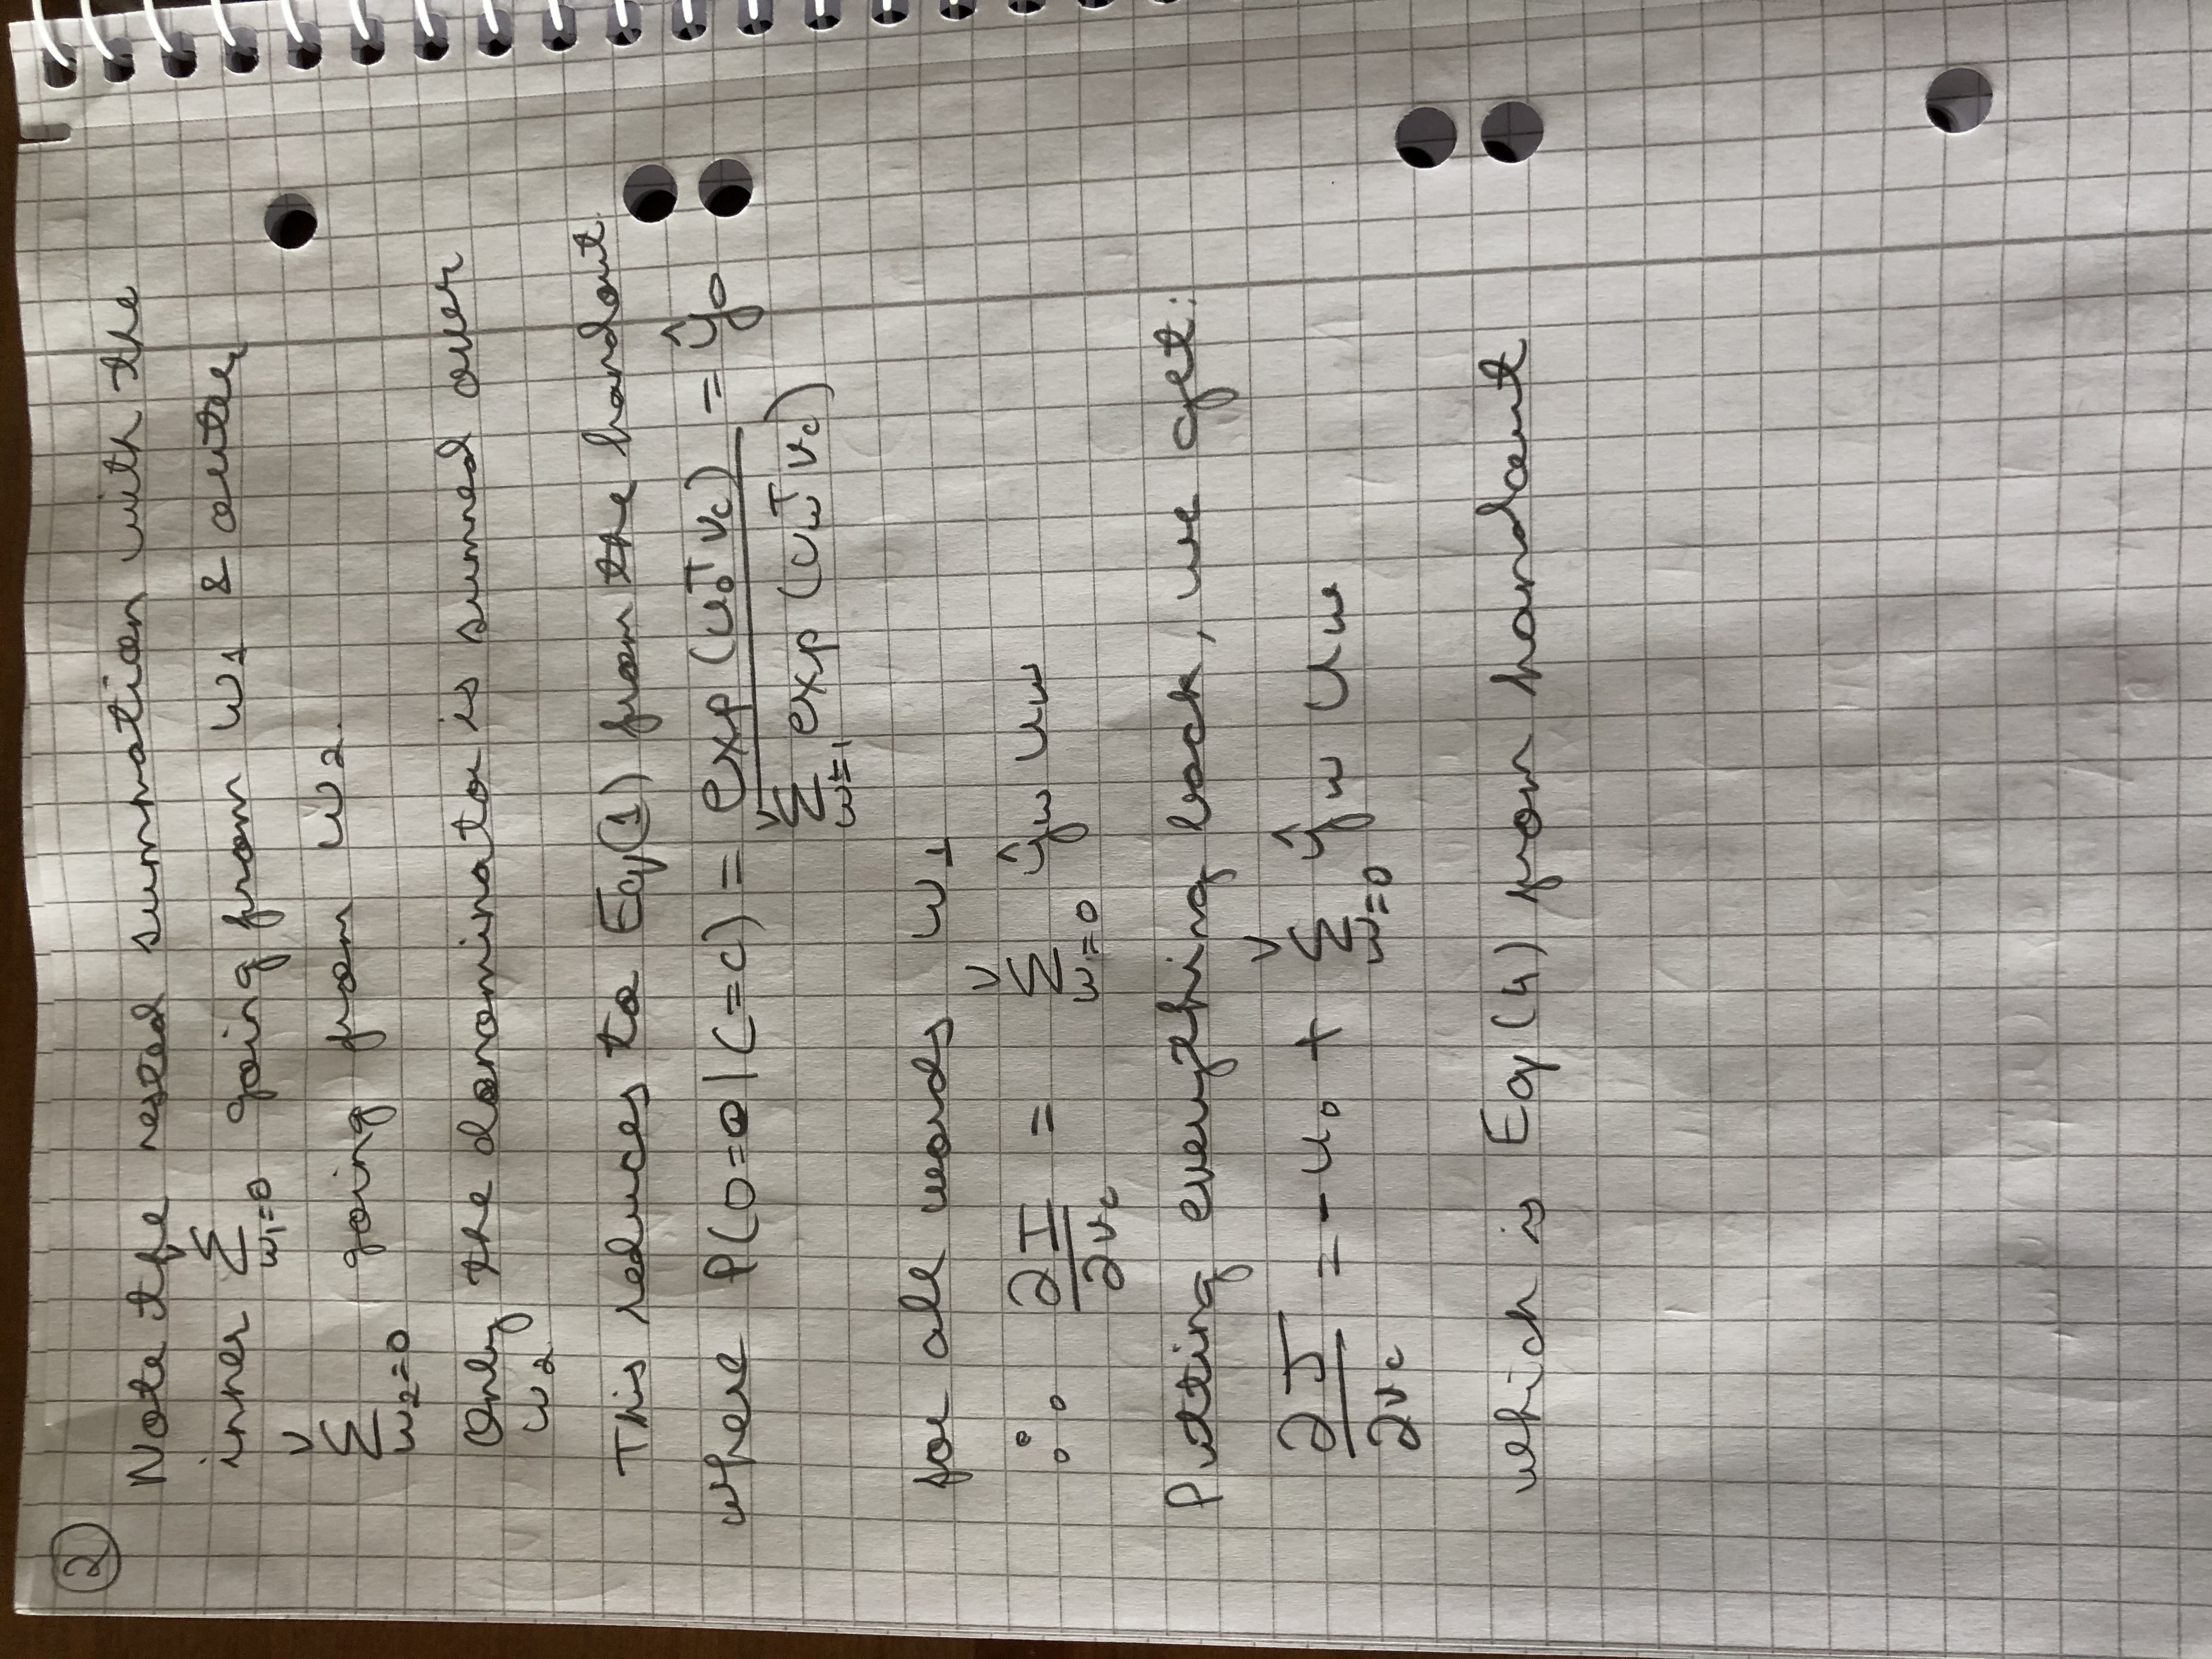 ②
Note the nested summation with the
inner Σ^V_{w₁=0} going from w₁ & outer
Σ^V_{w₂=0} going from w₂.
Only the donominator is summed over
w₂
This reduces to Eq(1) from the handout
where P(O=o|C=c) = exp(u₀ᵀ v_c) / Σ^V_{w=1} exp(u_wᵀ v_c) = ŷ₀
for all words w₁
∴ ∂I/∂v_c = Σ^V_{w=0} ŷ_w u_w
Putting everything back, we get:
∂J/∂v_c = -u₀ + Σ^V_{w=0} ŷ_w u_w
which is Eq (4) from handout